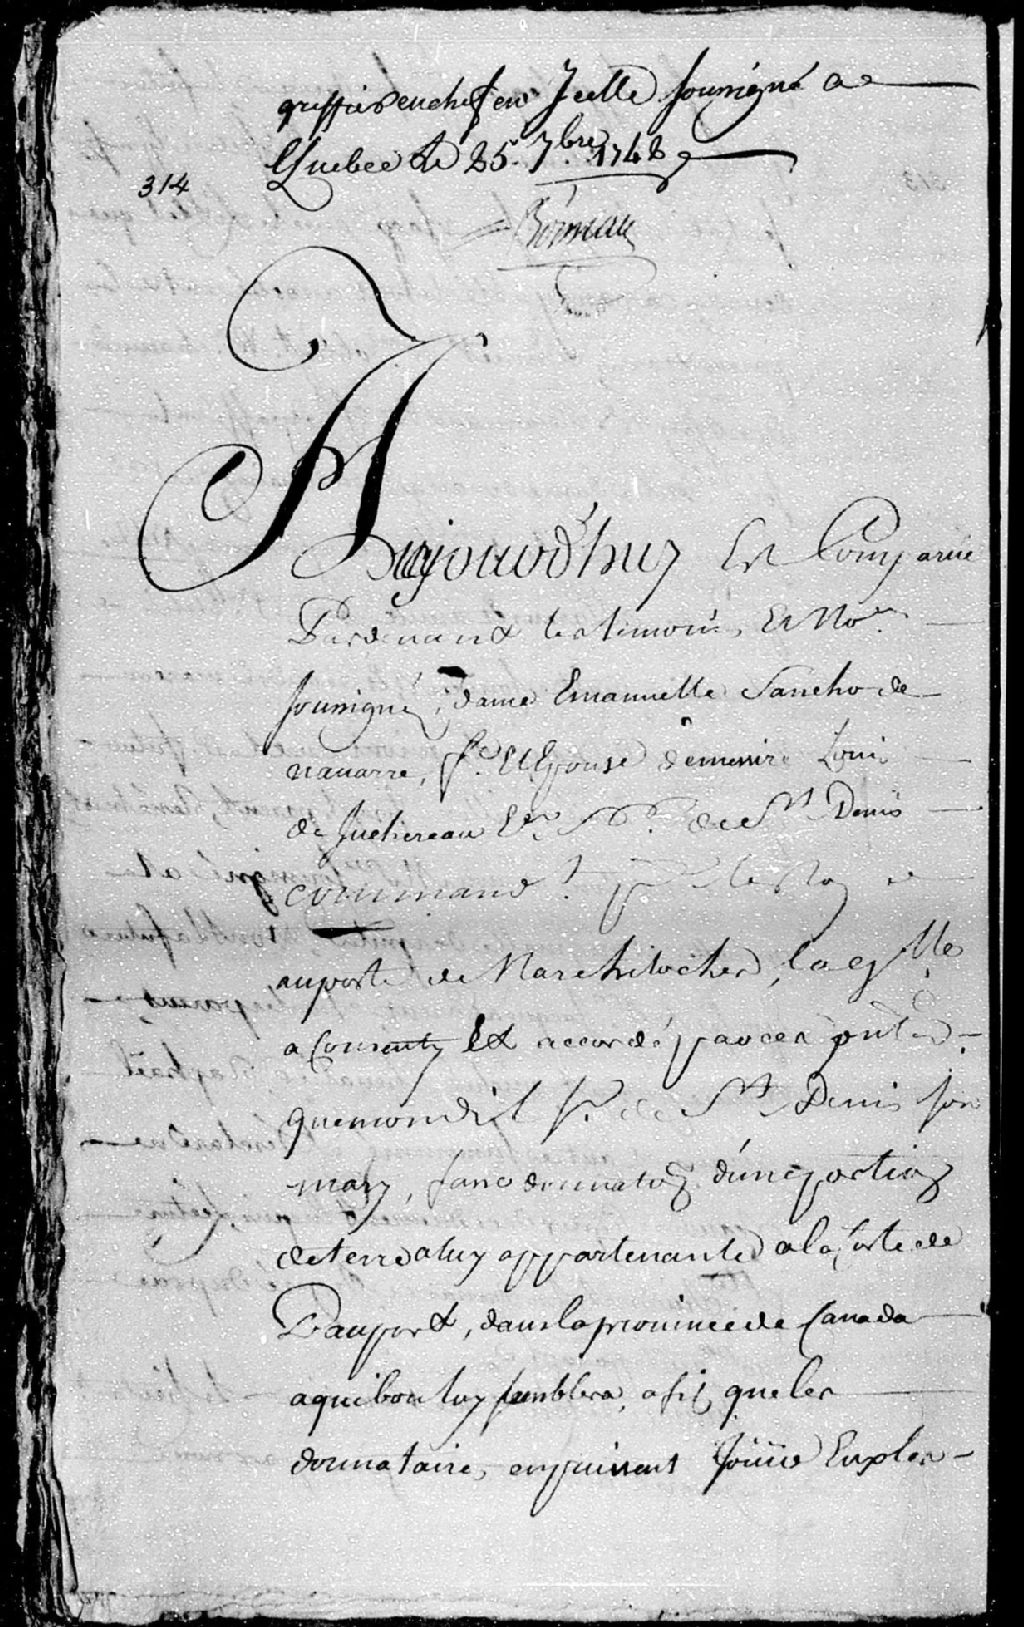 greffier en chef en Icelle soussigné a
Quebec le 25. 7.bre 1742
314
Boisseau
Aujourd'huy Est Comparüe
Pardevant les timoins, Et No.re
soussigné, dame Emanuelle Sancho de
nauarre, f.e Et Epouse de messire Loüis
de Juchereau E.r S.r de S.t Denis
command.t pour le Roy
au poste de Narchitoches, laq.lle
a Consenty Et accordé par ces pntes
que mondit s.r de S.t Denis son
mary, fasse donnation d'une portion
de terre a luy appartenante a la Coste de
Beauport, dans la prouince de Canada
a qui bon luy semblera, afin que les
donnataires, en puissent Joüire En ples